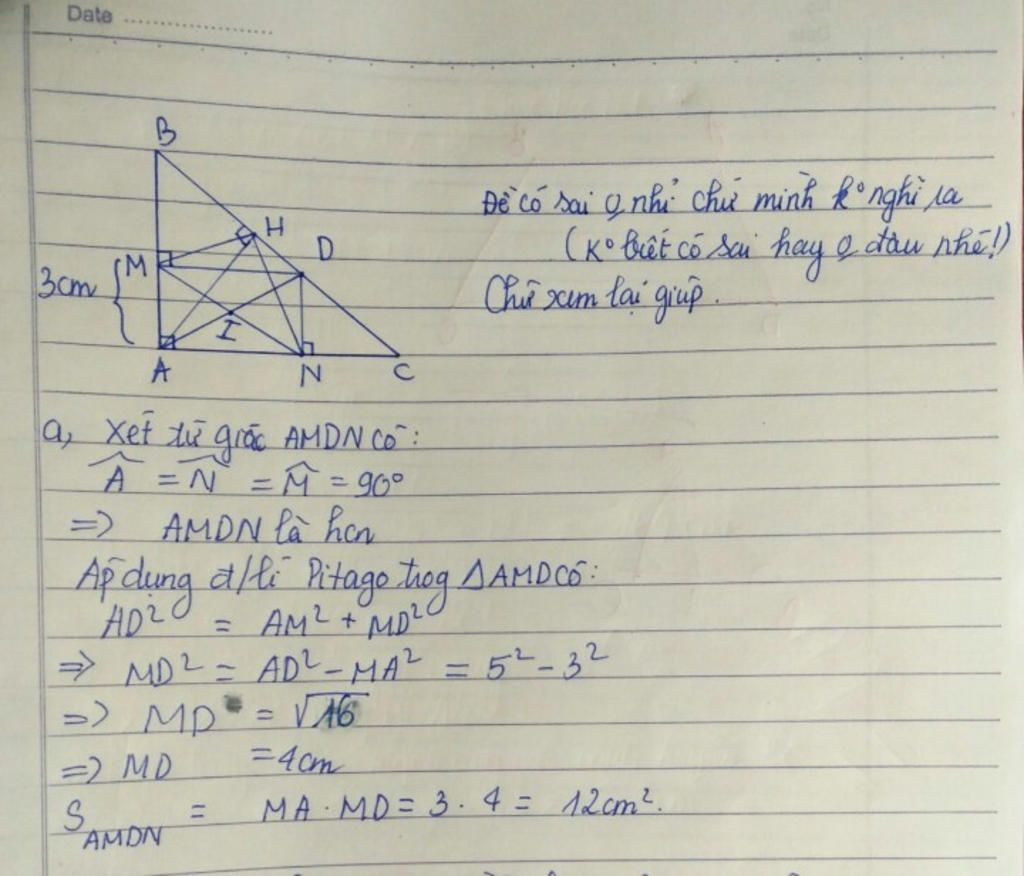 Date ......................
B
Đề có sai o nhỉ chứ mình k° nghĩ ra
H
D
(K° biết có sai hay o đâu nhé!)
M
3cm
Chữ xem lại giúp.
I
A
N
C
a, Xét tứ giác AMDN có:
Â = N̂ = M̂ = 90°
=> AMDN là hcn
Áp dụng đ/lí Pitago trog ΔAMD có:
AD² = AM² + MD²
=> MD² = AD² - MA² = 5² - 3²
=> MD = √16
=> MD = 4cm
S_AMDN = MA . MD = 3 . 4 = 12cm².